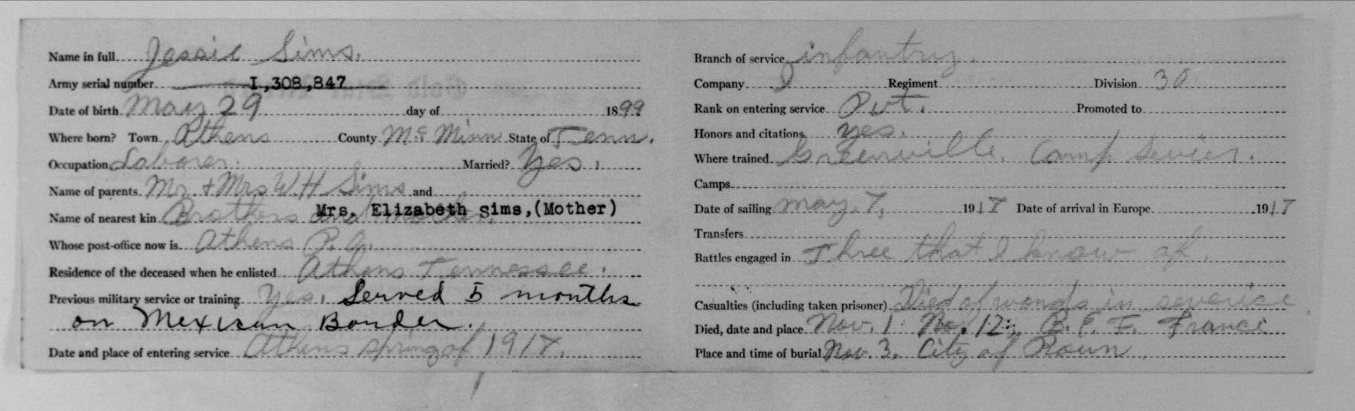 Name in full Jessie Sims.
Army serial number 1,308,847
Date of birth May 29 day of 1899
Where born? Town Athens County McMinn State of Tenn.
Occupation Laborer. Married? Yes.
Name of parents Mr + Mrs W H Sims and
Name of nearest kin Brothers Mrs. Elizabeth Sims,(Mother)
Whose post-office now is Athens P.O.
Residence of the deceased when he enlisted Athens Tennessee.
Previous military service or training Yes. Served 5 months
on Mexican Bouder.
Date and place of entering service Athens spring of 1917.
Branch of service infantry.
Company I Regiment Division 30
Rank on entering service Pvt. Promoted to
Honors and citations yes.
Where trained Greenville. Camp Sevier.
Camps
Date of sailing may. 7, 1917 Date of arrival in Europe 1917
Transfers
Battles engaged in Three that I know of
Casualties (including taken prisoner) Died of wonds in
Died, date and place Nov. 1 No. 12 France
Place and time of burial Nov. 3. City of Roun